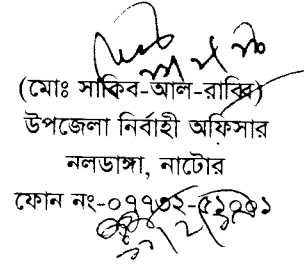 (মোঃ সাকিব-আল-রাব্বি)
উপজেলা নির্বাহী অফিসার
নলডাঙ্গা, নাটোর
ফোন নং-০৭৭৩২-৫১০০১